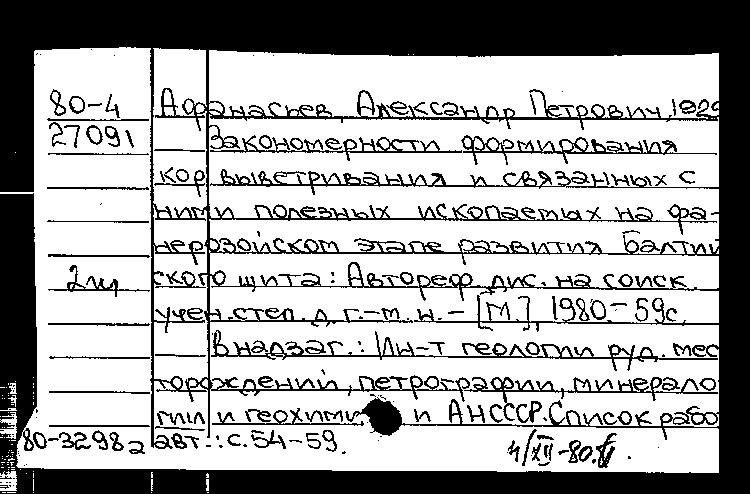 80-4 Афанасьев, Александр Петрович, 1929
27091 Закономерности формирования
кор выветривания и связанных с
ними полезных ископаемых на фа-
нерозойском этапе развития Балтий
ского щита: Автореф. дис. на соиск.
учен. степ. д. г.-м. н. - [М.], 1980. - 59с.
В надзаг.: Ин-т геологии руд. мес
торождений, петрографии, минерало
гии и геохимии АН СССР. Список рабо
80-32982 авт.: с. 54-59.
4/XII-80.